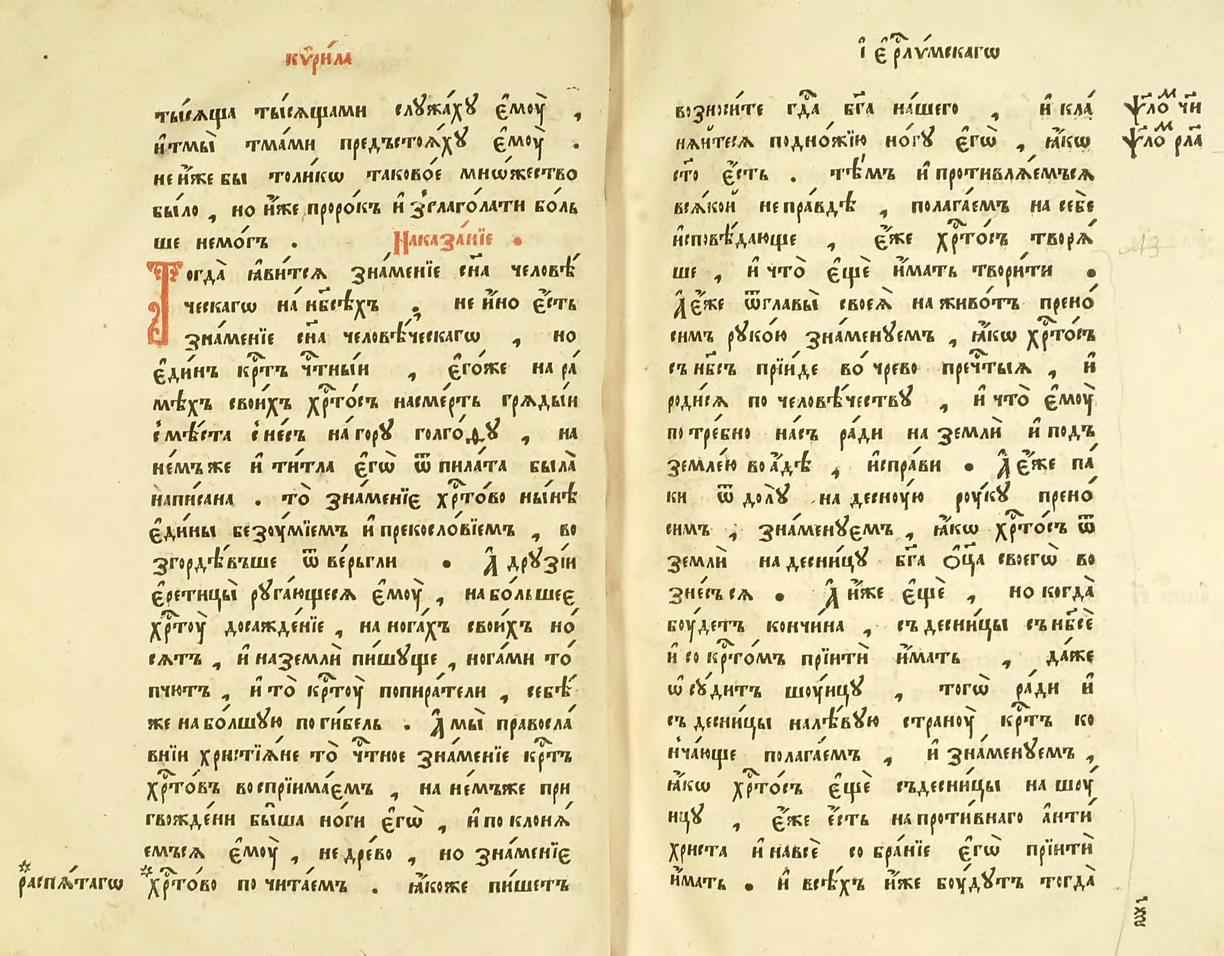 кѷри́ла
ты́сѧща ты́сѧщами слꙋжа́хꙋ є҆моу̀ ,
и҆тмы̀ тма́ми предъстоѧ́хꙋ є҆моу̀ .
не и҆́же бы толи́кѡ таково́е мнѡ́жество
бы́ло , но и҆́же проро́къ и҆ зглаго́лати бо́ль
ше немо́гъ . Наказа́нїе .
Тогда̀ ꙗ҆́витсѧ зна́менїе сн҃а человѣ́
ческагѡ на нб҃сѣ́хъ , не и҆́но є҆́сть
зна́менїе сн҃а человѣ́ческагѡ , но
є҆ди́нъ крⷭ҇тъ чⷭ҇тны́и , є҆го́же на ра́
мѣхъ свои́хъ хрⷭ҇то́съ насме́рть грѧды́и
с мѣ́ста снесъ на́ горꙋ голго́ѳꙋ , на
не́мъже и҆ ти́тла є҆гѡ̀ ѿ пила́та была̀
напи́сана . то̀ зна́менїе хрⷭ҇то́во ны́нѣ
є҆ди́ны безоу́мїемъ и҆ прекосло́вїемъ , во
згордѣ́въше ѿ ве́рьгли . А҆ дрꙋзі́и
є҆ретицы̀ рꙋга́ющесѧ є҆моу̀ , на бо́льшее
хрⷭ҇тоу̀ досажде́нїе , на нога́хъ свои́хъ но́
сѧтъ , и҆ на землѝ пи́шꙋще , нога́ми то́
пчютъ , и҆ то̀ крⷭ҇тоу̀ попира́тели , себѣ́
же на бо́лшꙋю поги́бель . А҆ мы̀ правосла́
внїи христїѧ́не то̀ чⷭ҇тное зна́менїе крⷭ҇тъ
хрⷭ҇то́въ воспрїима́емъ , на не́мъже при
гвожде́ни бы́ша но́ги є҆гѡ̀ , и҆ поклонѧ́
емъсѧ є҆моу̀ , не дре́во , но зна́менїе
распѧ́тагѡ
хрⷭ҇то́во почита́емъ . ꙗ҆́коже пи́шетъ
і҆ є҆рⷭ҇лѵ́мскагѡ
возноси́те гдⷭ҇а бг҃а на́шего , и҆ кла́
нѧйтесѧ подно́жїю но́гꙋ є҆гѡ̀ , ꙗ҆́кѡ
ст҃о є҆́сть . тѣ́мъ и҆ противлѧ́емъсѧ
всѧ́кой непра́вдѣ , полага́емъ на себѐ
и҆сповѣ́дающе , є҆́же хрⷭ҇то́съ творѧ́
ше , и҆ что̀ є҆щѐ и҆́мать твори́ти .
А҆ є҆́же ѿ главы̀ своеѧ̀ на живо́тъ прено́
симъ рꙋко́ю зна́менꙋемъ , ꙗ҆́кѡ хрⷭ҇то́съ
съ нб҃съ прїи́де во чре́во прⷱ҇тыѧ , и҆
роди́сѧ по человѣ́чествꙋ , и҆ что̀ є҆моу̀
потре́бно на́съ ра́ди на землѝ и҆ подъ
земле́ю во а҆́дѣ , и҆спра́ви . А҆ є҆́же па́
ки ѿ до́лꙋ на десноу́ю роу́кꙋ прено́
симъ , зна́менꙋемъ , ꙗ҆́кѡ хрⷭ҇то́съ ѿ
землѝ на десни́цꙋ бг҃а ѻц҃а своегѡ̀ во
зне́съсѧ . А҆ и҆́же є҆щѐ , но когда̀
боу́детъ кончи́на , съ десни́цы съ нб҃сѐ
и҆ со крⷭ҇то́мъ прїитѝ и҆́мать , да́же
ѡ҆сꙋ́дитъ шоу́ицꙋ , тогѡ̀ ра́ди и҆
съ десни́цы на лѣ́вꙋю страноу̀ крⷭ҇тъ ко
нча́юще полага́емъ , и҆ зна́менꙋемъ ,
ꙗ҆́кѡ хрⷭ҇то́съ є҆щѐ съ десни́цы на шоу́
ицꙋ , є҆́же є҆́сть на проти́внаго а҆нти́
христа и҆ на всѐ собра́нїе є҆гѡ̀ прїитѝ
и҆́мать . и҆ всѣ́хъ и҆́же боу́дꙋтъ тогда̀
ѱло́ⷨ чи
ѱло́ⷨ рла